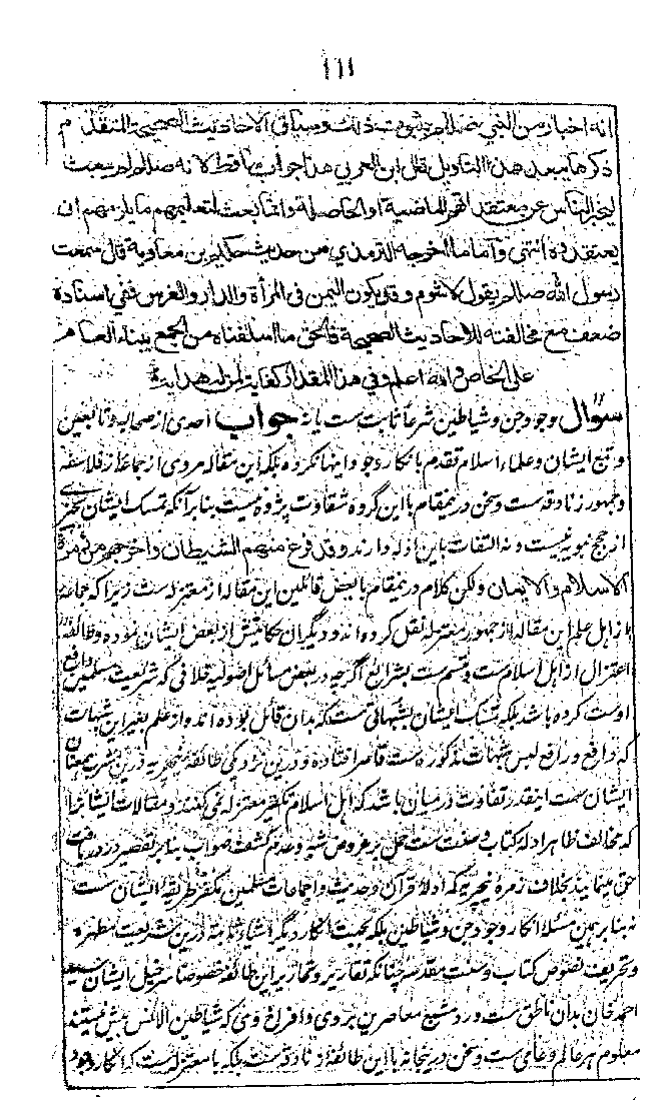 ۱۱۱
انه اخبار من النبي صلعم بثبوت ذلك وسياق الاحاديث الصحيحة المتقدم
ذكرها يبعد هذا التاويل قال ابن العربي هذا جواب ساقط لانه صلعم لم يبعث
ليخبر الناس عن معتقداتهم الماضية او الحاصلة وانما بعث لتعليمهم ما يلزمهم ان
يعتقدوه انتهى واما ما اخرجه الترمذي من حديث حكيم بن معاوية قال سمعت
رسول الله صلعم يقول لا شوم وقد يكون اليمن فى المرأة والدار والفرس ففي اسناده
ضعف مع مخالفته للاحاديث الصحيحة فالحق ما اسلفناه من الجمع ببناء العام
على الخاص والله اعلم وفي هذا المقدار كفاية لمن له هداية
سوال وجود جن وشياطين شرعاً ثابت ست يا نه جواب احدى از صحابه وتابعين
وتبع ايشان وعلماء اسلام تقدم بانكار وجود اينها نكرده بلكه اين مقاله مروى از جماعۀ فلاسفه
وجمهور زنادقه ست وسخن درينمقام با اين گروه شقاوت پژوه نيست بنا بر آنكه تمسك ايشان
از حجج نبويه نيست ونه التفات باين ادله دارند وقد فرغ منهم الشيطان واخرجهم من
الاسلام والايمان ولكن كلام درينمقام با بعض قائلين اين مقاله از معتزله ست زيرا كه جماعۀ
از اهل علم اين مقاله از جمهور معتزله نقل كرده اند وديگران حكايتش از بعض ايشان نموده وطائفۀ
اعتزال از اهل اسلام ست ومتسم ست بشرائع اگرچه در بعض مسائل اصوليه خلافى كه شريعت
اوست كرده باشد بلكه تمسك ايشان بشبهاتى ست كه بدان قائل بوده اند واز علم بغير اين شبهات
كه دافع ورافع لبس شبهات مذكوره ست قاصر افتاده ودرين نزدكى طائفۀ نيچريه درين مشرب
ايشان ست اينقدر تفاوت درميان باشد كه اهل اسلام تكفير معتزله نمى كنند ومقالات ايشانرا
كه مخالف ظاهر ادلۀ كتاب وسنت ست حمل بر عروض شبه وعدم كشف صواب بنا بر تقصير در دريافت
حق مينمايند بخلاف زمرۀ نيچريه كه ادلۀ قرآن وحديث واجماعات مسلمين مكفر طريقۀ ايشان ست
نه بنا بر همين مسئلۀ انكار وجود جن وشياطين بلكه بجهت انكار ديگر اشياء ثابته درين شريعت مطهره
وتحريف نصوص كتاب وسنت مقدسه چنانكه تقارير وتحارير اين طائفه خصوصاً سرخيل ايشان سيد
احمد خان بدان ناطق ست ودر مشيع معاصرين بروى وافراغ ومى كه شياطين الانس بيش نيستند
معلوم هر عالم وعامى ست وسخن درينجا نه با اين طائفه از نادقه ست بلكه با معتزله ست كه انكار وجود